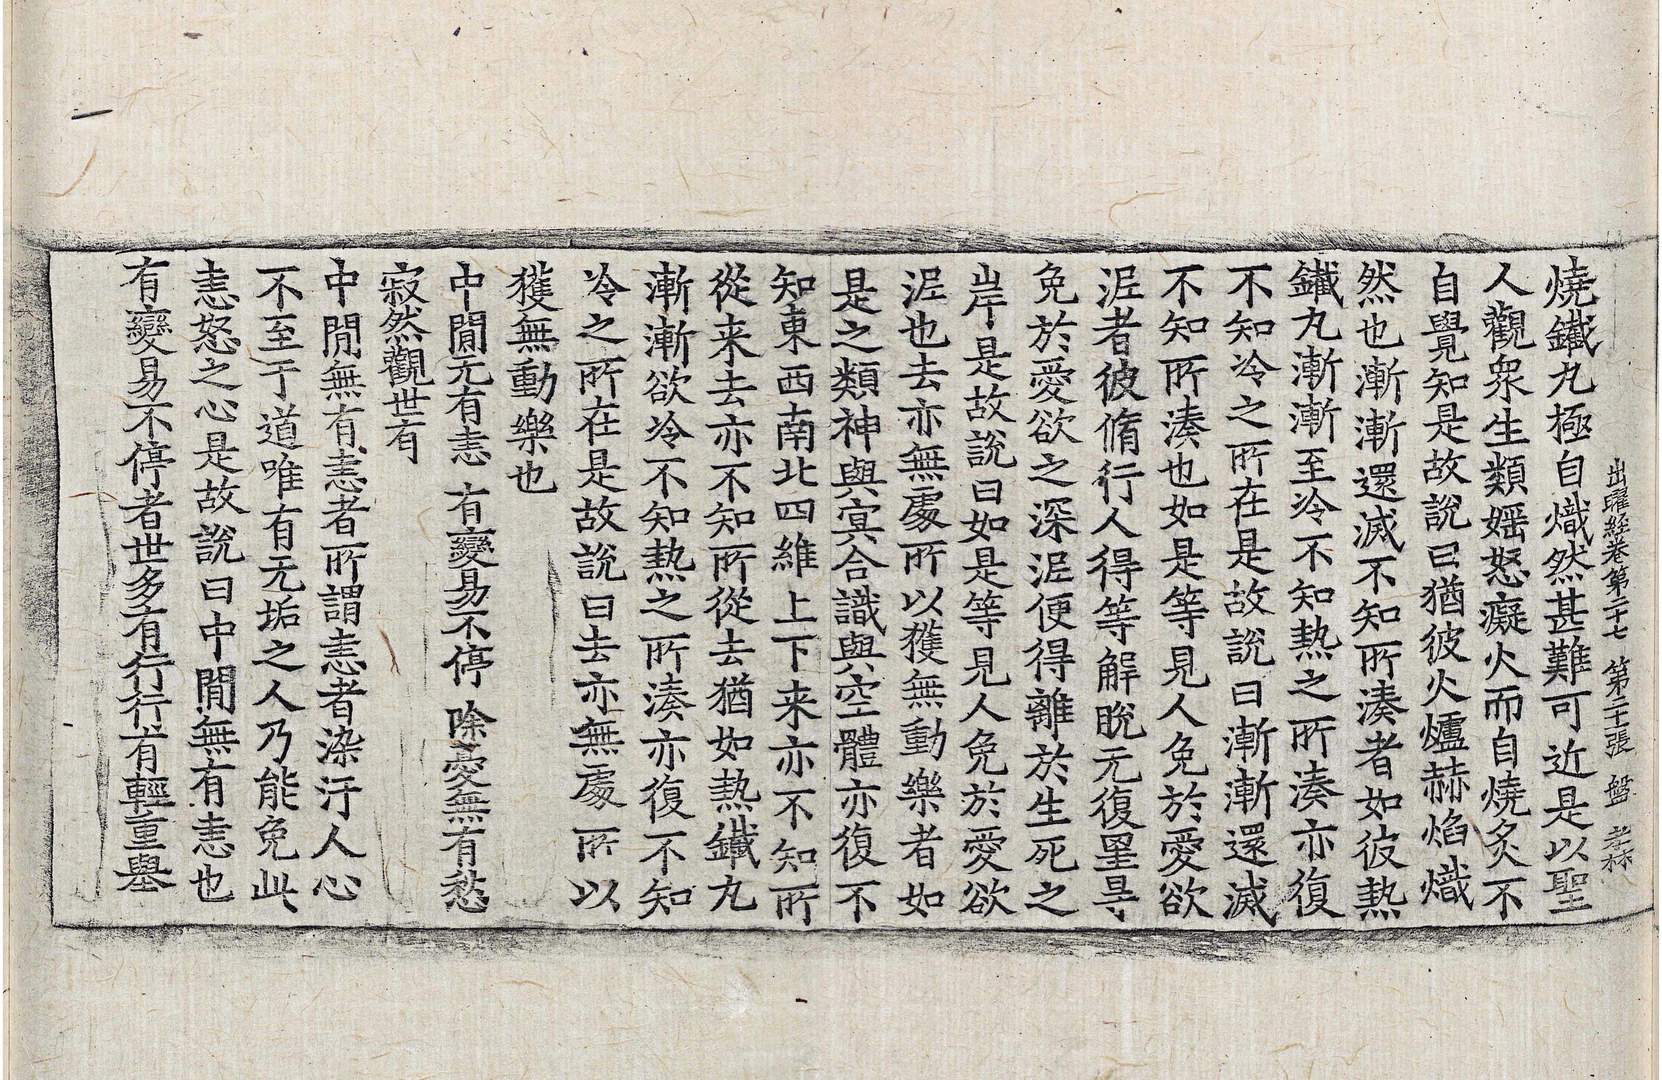 出曜經卷第二十七 第二十張 盤 孝林
燒鐵九極自熾然甚難可近是以聖
人觀衆生類婬怒癡火而自燒炙不
自覺知是故說曰猶彼火爐赫焰熾
然也漸漸還滅不知所湊者如彼熱
鐵九漸漸至冷不知熱之所湊亦復
不知冷之所在是故說曰漸漸還滅
不知所湊也如是等見人免於愛欲
泥者彼脩行人得等解脫无復罣㝵
免於愛欲之深泥便得離於生死之
岸是故說曰如是等見人免於愛欲
泥也去亦無處所以獲無動樂者如
是之類神與冥合識與空體亦復不
知東西南北四維上下来亦不知所
從来去亦不知所從去猶如熱鐵九
漸漸欲冷不知熱之所湊亦復不知
冷之所在是故說曰去亦無處所以
獲無動樂也
中閒无有恚 有變易不停 除憂無有愁
寂然觀世有
中閒無有恚者所謂恚者染汙人心
不至于道唯有无垢之人乃能免此
恚怒之心是故說曰中閒無有恚也
有變易不停者世多有行行有輕重舉